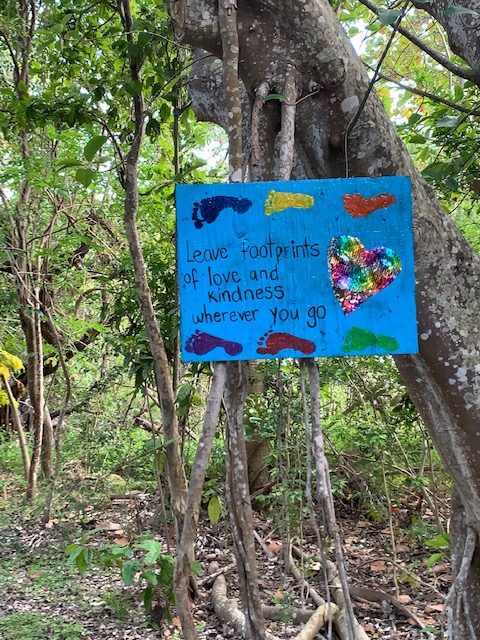 Leave footprints
of love and
kindness
wherever you go